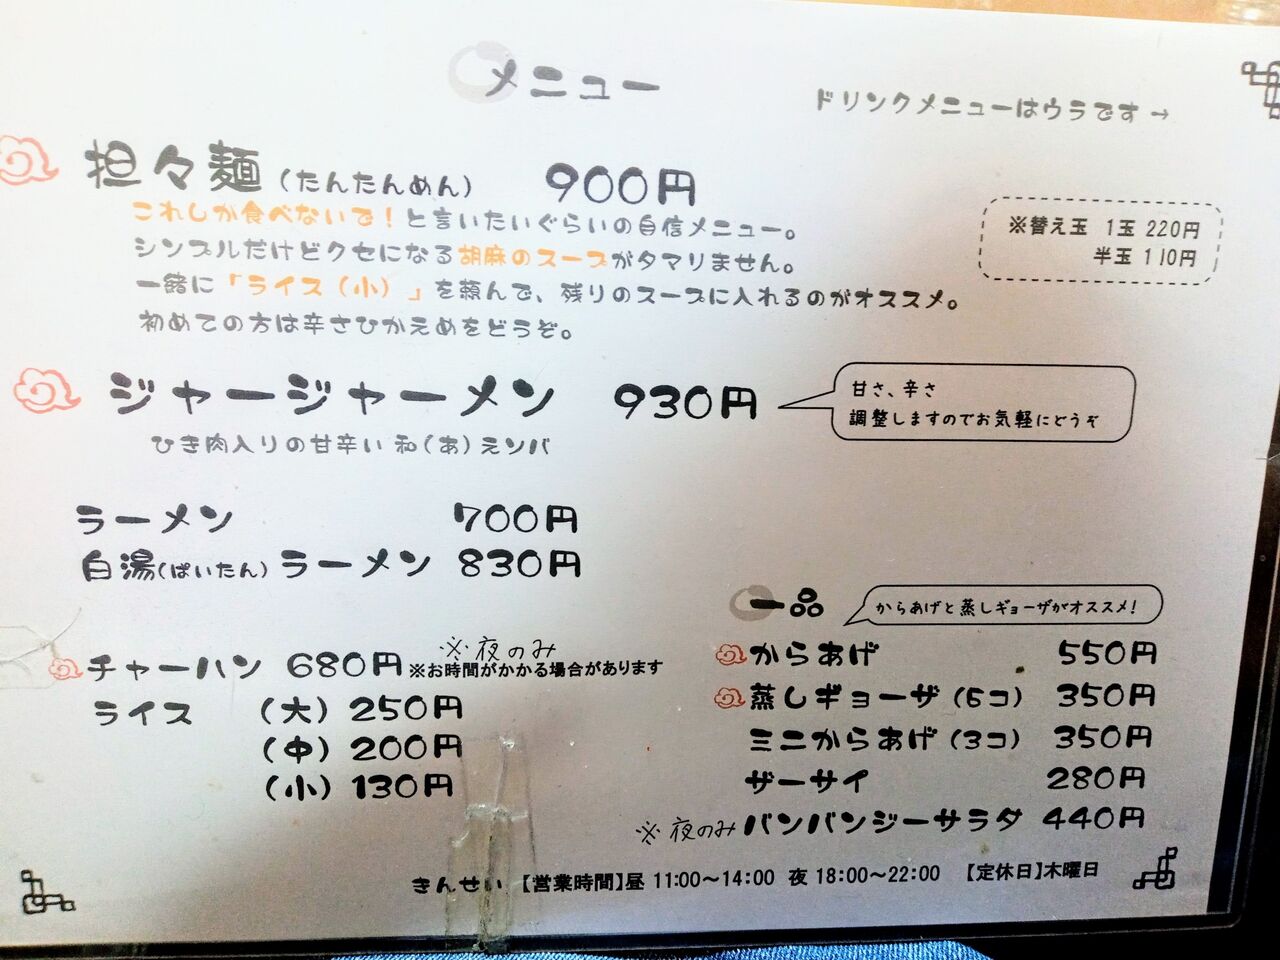 メニュー
ドリンクメニューはウラです→
担々麺(たんたんめん) 900円
これしか食べないで!と言いたいぐらいの自信メニュー。
シンプルだけどクセになる胡麻のスープがタマリません。
一緒に「ライス(小)」を頼んで、残りのスープに入れるのがオススメ。
初めての方は辛さひかえめをどうぞ。
※替え玉 1玉 220円
半玉 110円
ジャージャーメン 930円
ひき肉入りの甘辛い 和(あ)えソバ
甘さ、辛さ
調整しますのでお気軽にどうぞ
ラーメン 700円
白湯(ぱいたん)ラーメン 830円
※夜のみ
チャーハン 680円 ※お時間がかかる場合があります
ライス (大) 250円
(中) 200円
(小) 130円
一品
からあげと蒸しギョーザがオススメ!
からあげ 550円
蒸しギョーザ(5コ) 350円
ミニからあげ(3コ) 350円
ザーサイ 280円
※夜のみ バンバンジーサラダ 440円
きんせい 【営業時間】昼 11:00〜14:00 夜 18:00〜22:00 【定休日】木曜日